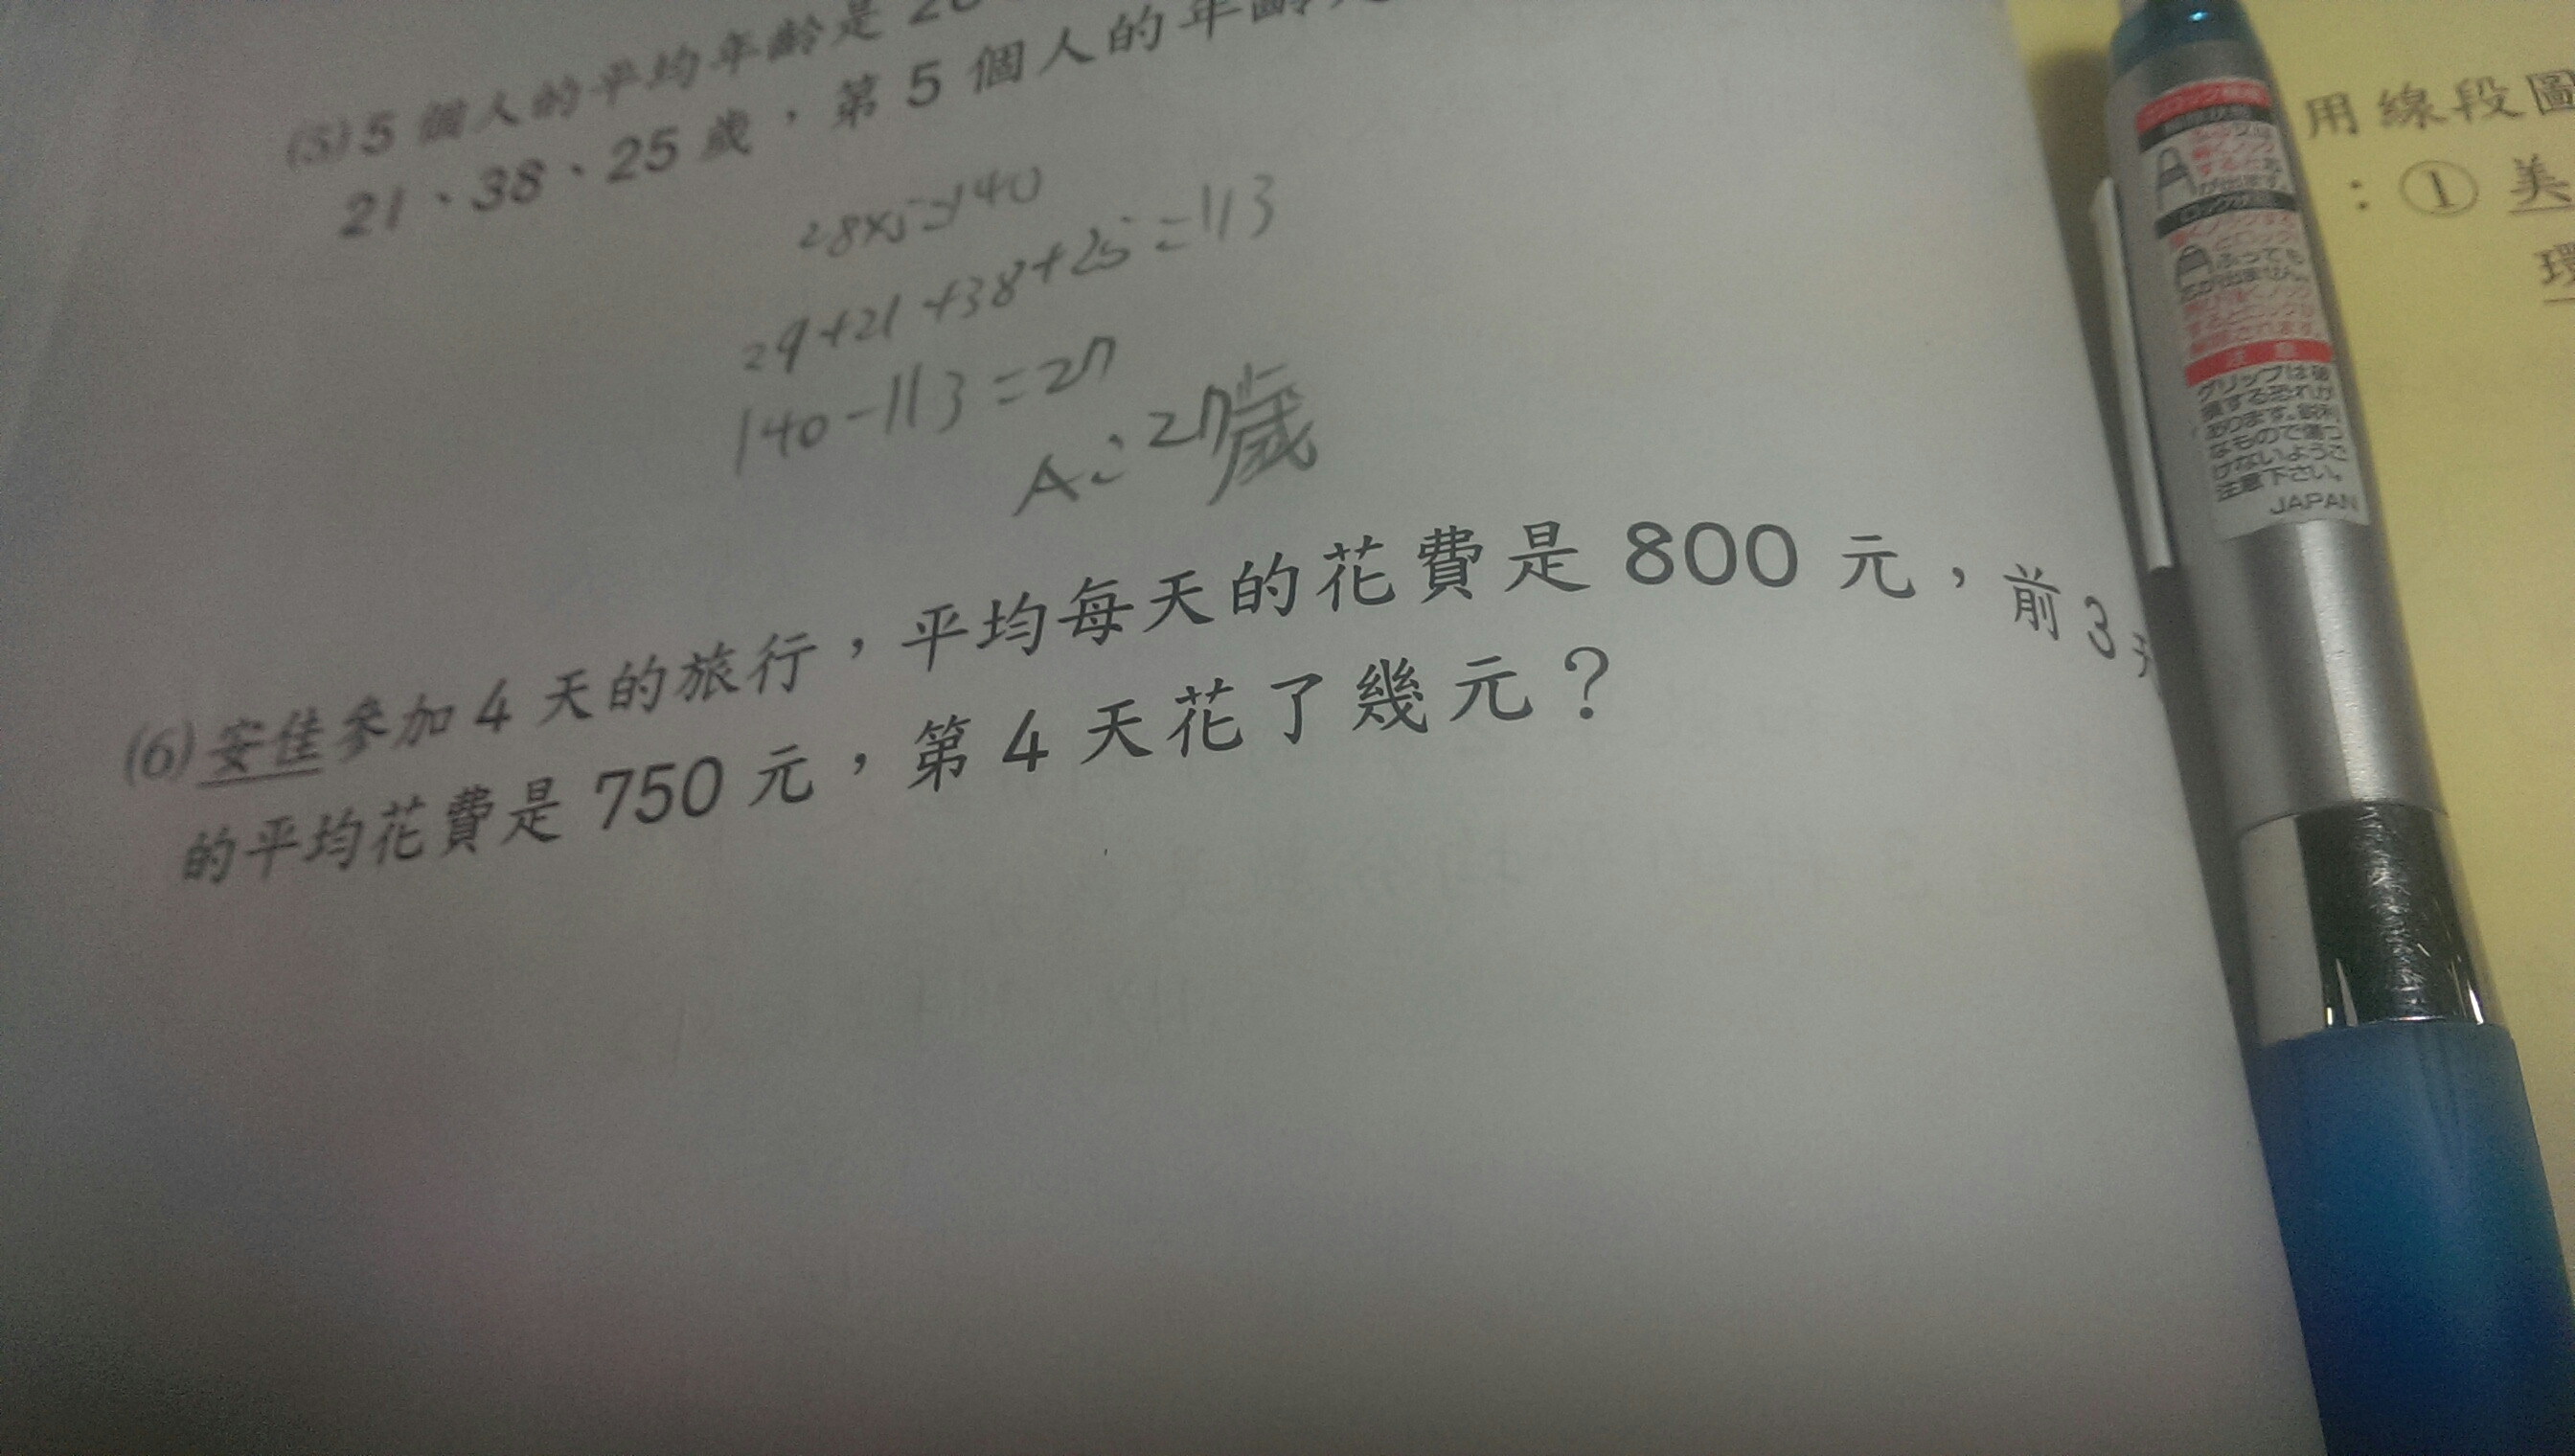 (5) 5 個人的平均年齡是 28
21、38、25 歲,第 5 個人的年齡
28×5=140
29+21+38+25=113
140-113=27
A:27歲
(6) 安佳參加 4 天的旅行,平均每天的花費是 800 元,前 3 天
的平均花費是 750 元,第 4 天花了幾元?
用線段圖
:① 美
環
注意
グリップは破
損する恐れが
あります。鋭利
なもので傷つ
けないようご
注意下さい。
JAPAN